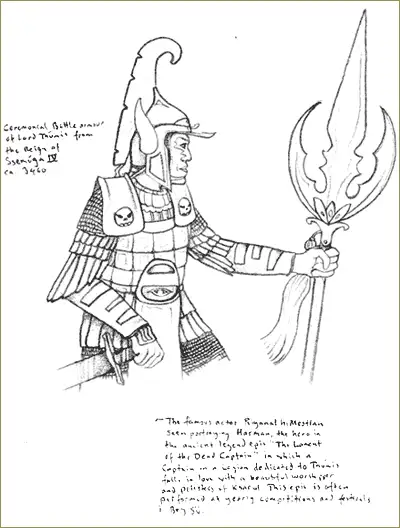 Ceremonial Battle armour
of Lord Thúmis from
the Reign of
Ssemúga IV
ca. 3460
~ The famous actor hiMostlan
seen portraying Harman, the hero in
the ancient legend epic "The Lament
of the Dead Captain" in which a
Captain in a Legion dedicated to Thúmis
falls in love with a beautiful worshipper
and priestess of Ksarul. This epic is often
performed at yearly competitions and festivals
i Bey Sü.